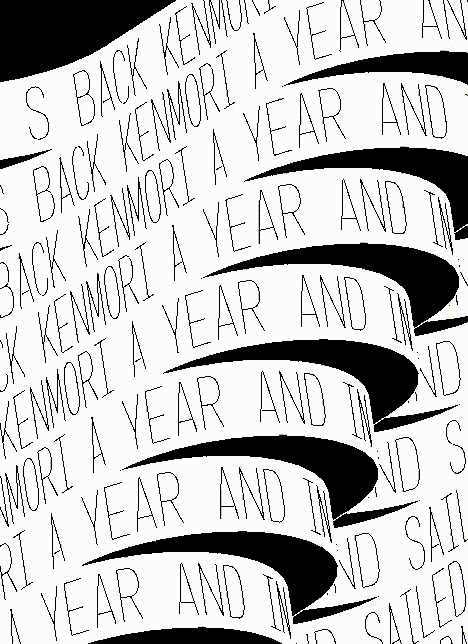 S BACK KENMORI A YEAR AN
S BACK KENMORI A YEAR AND
BACK KENMORI A YEAR AND IN
CK KENMORI A YEAR AND IN
KENMORI A YEAR AND IN ND
MORI A YEAR AND IN ND S
RI A YEAR AND IN ND SAIL
A YEAR AND IN D SAILED